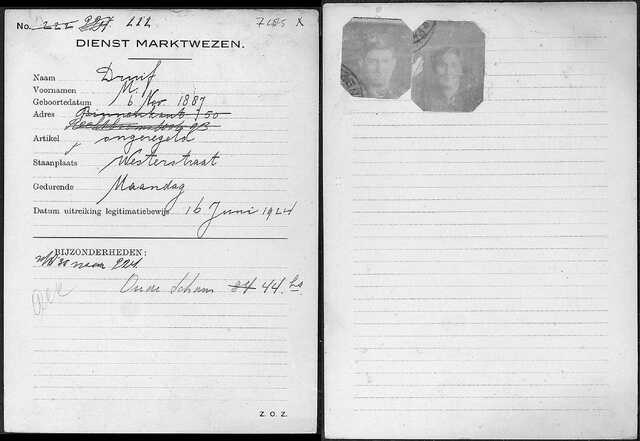 No. 222 224 222 7485 X
DIENST MARKTWEZEN.
Naam Druif
Voornamen M.
Geboortedatum 6 Nov. 1887
Adres 150
Artikel ongeregeld
Staanplaats Westerstraat
Gedurende Maandag
Datum uitreiking legitimatiebewijs 16 Juni 1924
BIJZONDERHEDEN:
naar 224.
Oude Schans 34 44.
Z.O.Z.